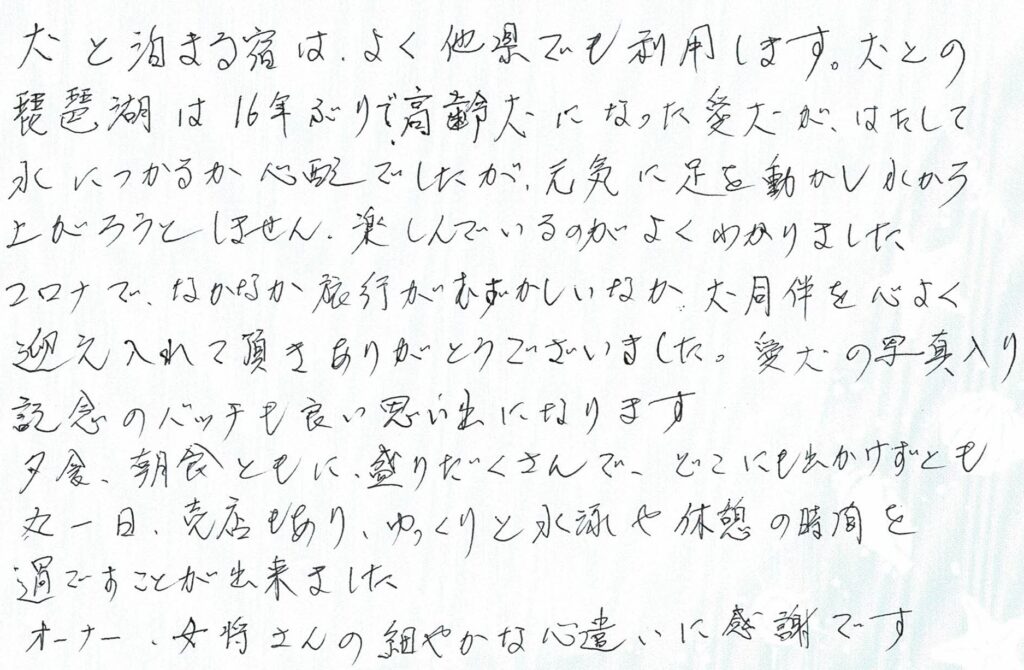 犬と泊まる宿は、よく他県でも利用します。犬との
琵琶湖は16年ぶりで高齢犬になった愛犬が、はたして
水につかるか心配でしたが、元気に足を動かし水から
上がろうとしません、楽しんでいるのがよくわかりました
コロナで、なかなか旅行がむずかしいなか、犬同伴を心よく
迎え入れて頂きありがとうございました。愛犬の写真入り
記念のバッチも良い思い出になります
夕食、朝食ともに、盛りだくさんで、どこにも出かけずとも
丸一日、売店もあり、ゆっくりと水泳や休憩の時間を
過ごすことが出来ました
オーナー、女将さんの細やかな心遣いに感謝です